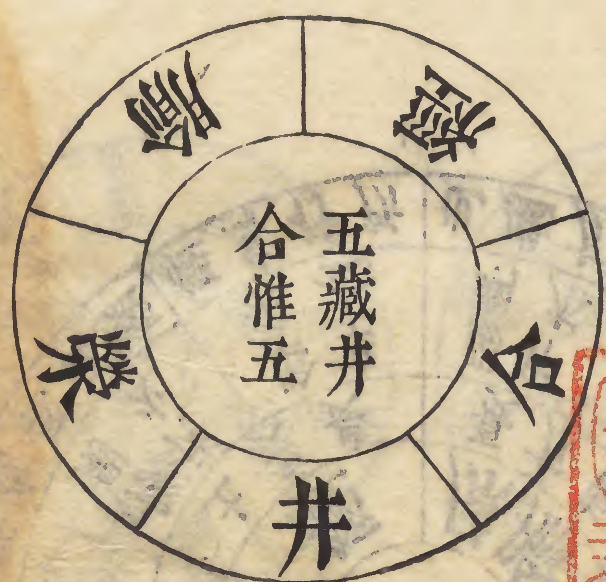 五藏井
合惟五
井
榮
腧
經
合